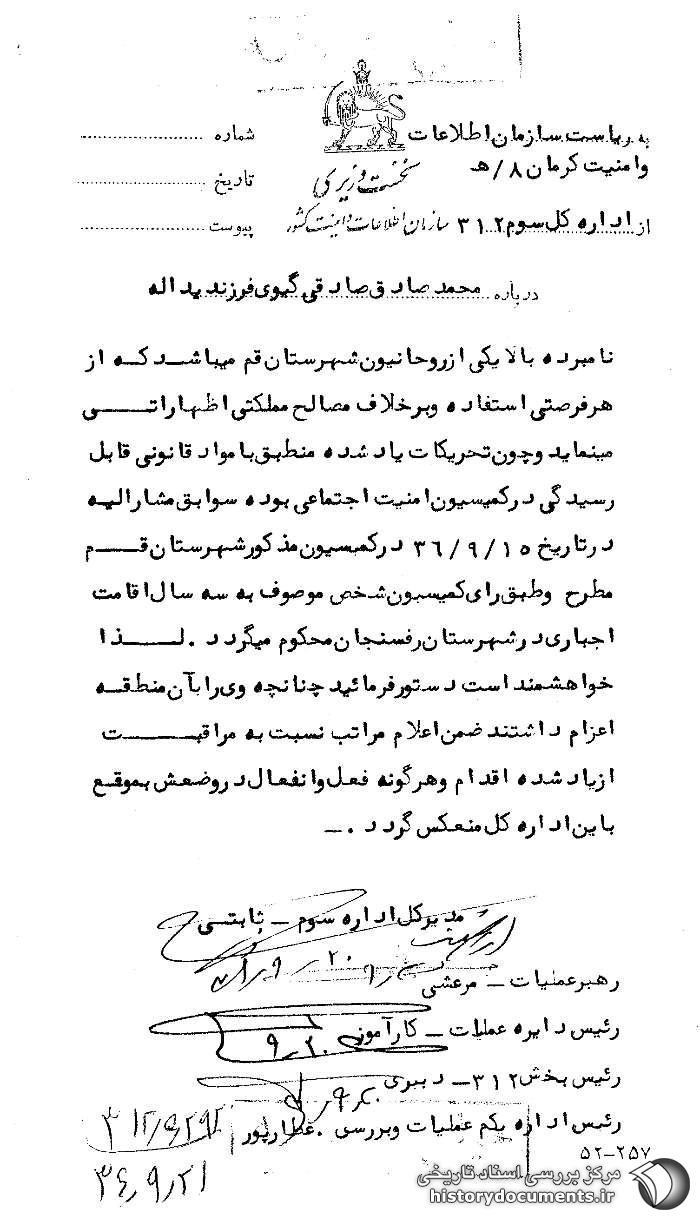 به ریاست سازمان اطلاعات
وامنیت کرمان ۸/هـ
از اداره کل سوم ۳۱۲
نخست وزیری
سازمان اطلاعات و امنیت کشور
شماره
تاریخ
پیوست
درباره محمد صادق صادقی گیوی فرزند یداله
نامبرده بالا یکی از روحانیون شهرستان قم میباشد که از
هر فرصتی استفاده وبرخلاف مصالح مملکتی اظهاراتی
مینماید وچون تحریکات یاد شده منطبق با مواد قانونی قابل
رسیدگی در کمیسیون امنیت اجتماعی بوده سوابق مشارالیه
در تاریخ ۳۶/۹/۱۵ در کمیسیون مذکور شهرستان قم
مطرح وطبق رای کمیسیون شخص موصوف به سه سال اقامت
اجباری در شهرستان رفسنجان محکوم میگردد . لذا
خواهشمند است دستور فرمائید چنانچه وی را بآن منطقه
اعزام داشتند ضمن اعلام مراتب نسبت به مراقبت
از یاد شده اقدام وهرگونه فعل وانفعال در وضعش بموقع
باین اداره کل منعکس گردد .ـ
مدیرکل اداره سوم ـ ثابتی
رهبر عملیات ـ مرعشی
رئیس دایره عملیات ـ کارآموز
۹٫۲۰
رئیس بخش ۳۱۲ ـ دبیری
رئیس اداره یکم عملیات وبررسی . عطارپور
۳۱۲/۵۲۹۲
۳۶٫۹٫۲۱
۵۲-۲۵۷
مرکز بررسی اسناد تاریخی
historydocuments.ir